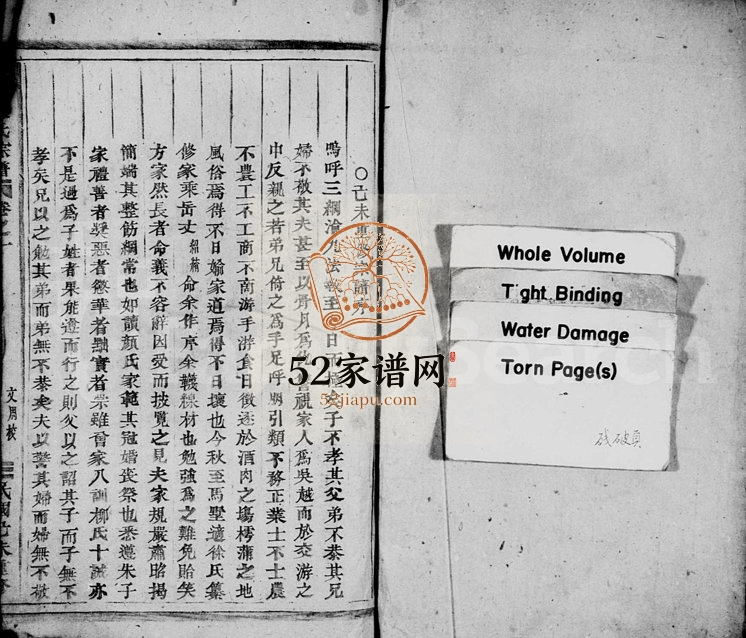 ○己未重修
嗚呼三綱淪九法斁至今日而極矣子不孝其父弟不恭其兄
婦不敬其夫甚至以骨月爲視家人爲吳越而於交游之
中反親之若弟兄倚之爲手足呼朋引類不務正業士不士農
不農工不工商不商游手游食日徵逐於酒肉之塲樗蒲之地
風俗焉得不日媮家道焉得不日壞也今秋至馬墅適徐氏纂
修家乘岳丈紹楠命余作序余襪線材也勉強爲之難免貽笑
方家然長者命義不容辭因爰而披覽之見夫家規嚴肅昭揭
簡端其整飭綱常也如讀顏氏家範其冠婚喪祭也悉遵朱子
家禮善者奬惡者懲華者黜實者崇雖曾家八訓柳氏十誡亦
不是過爲子姓者果能遵而行之則父以之詔其子而子無不
孝矣兄以之勉其弟而弟無不恭矣夫以警其婦而婦無不敬
氏宗譜
文周校
民國己未重修
52家谱网
52jiapu.com
Whole Volume
Tight Binding
Water Damage
Torn Page(s)
残破頁